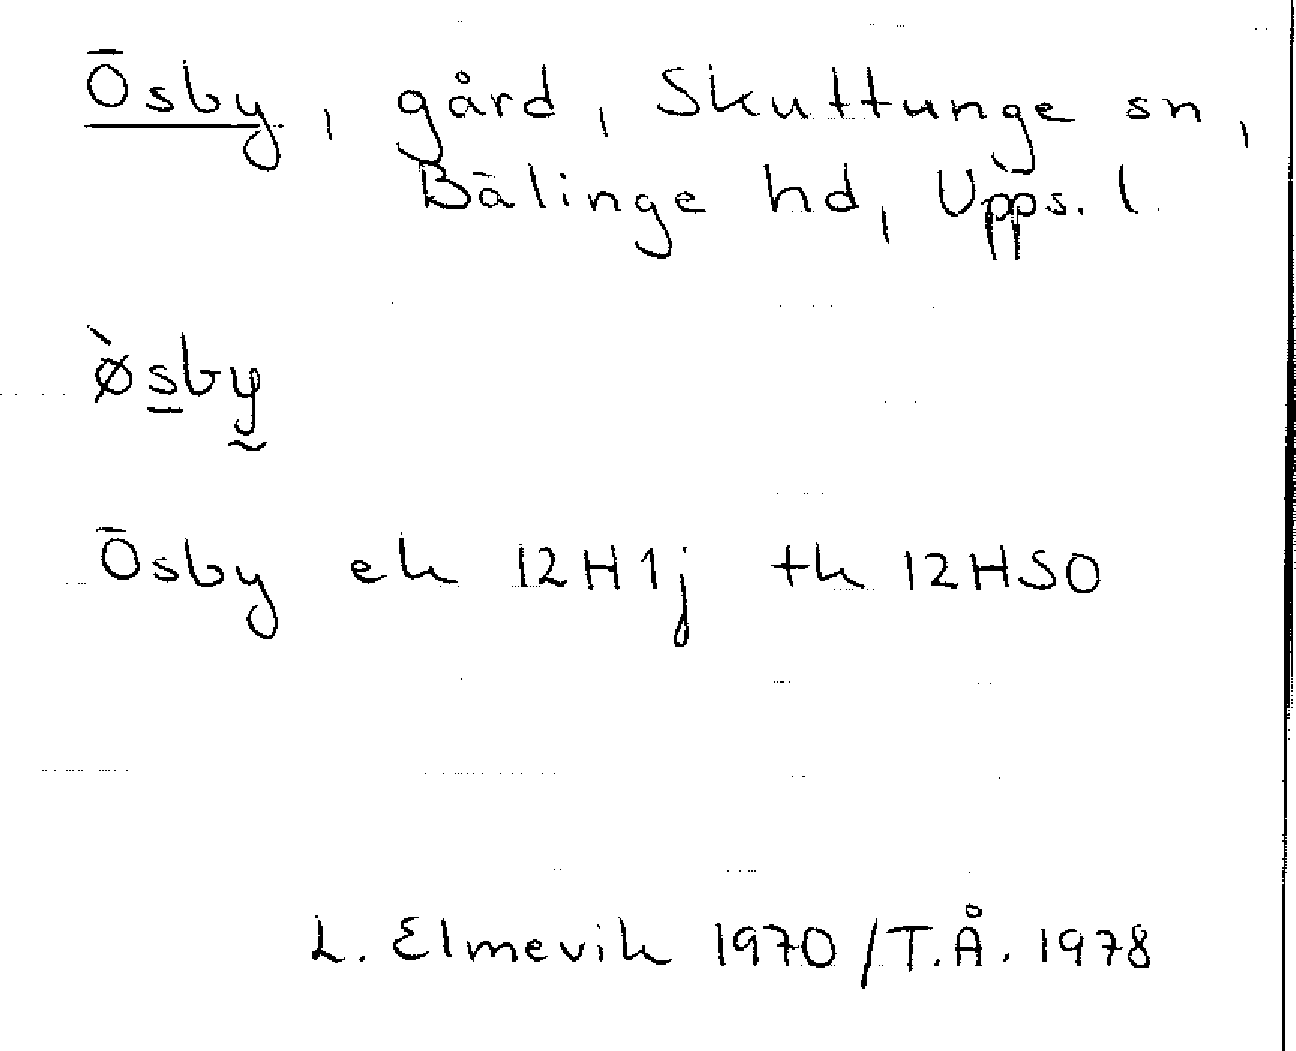 Ösby, gård, Skuttunge sn,
Bälinge hd, Upps. l.
ø̀sby
Ösby ek 12H1j tk 12HSO
L. Elmevik 1970/T.Å. 1978